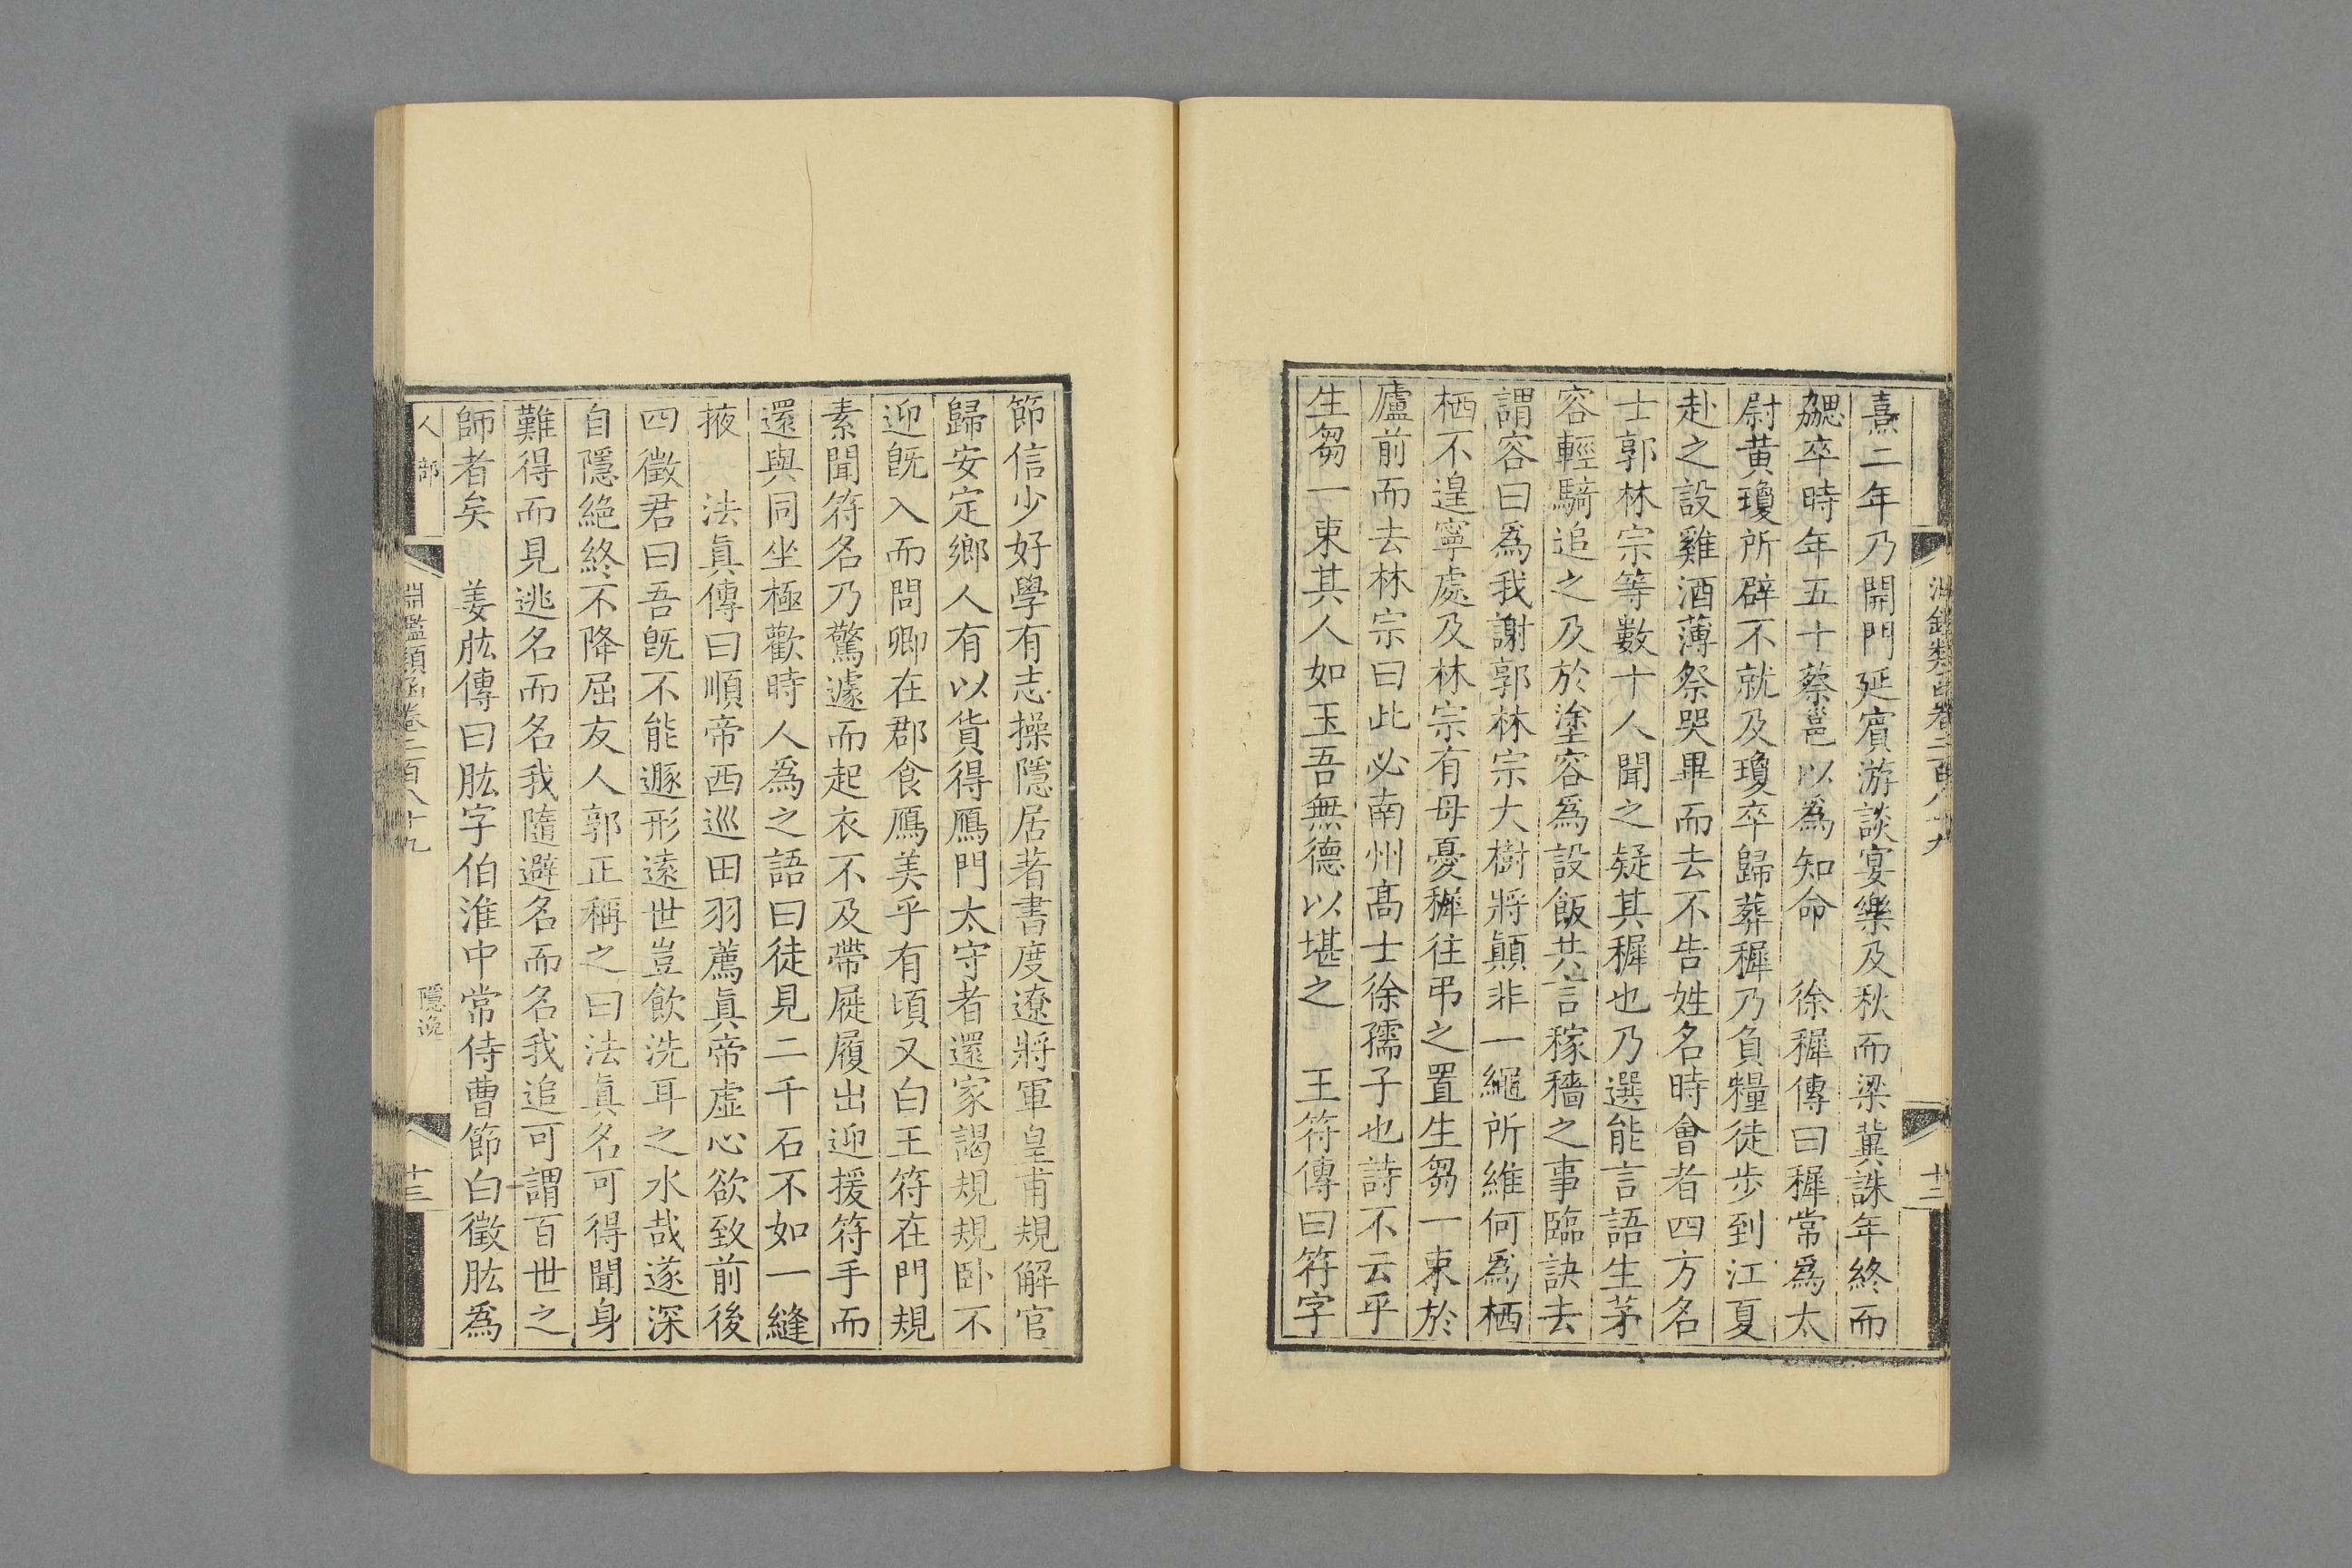 熹二年乃開門延賓游談宴樂及秋而梁冀誅年終而
勰卒時年五十蔡邕以為知命　徐穉傳曰穉常爲太
尉黄瓊所辟不就及瓊卒歸葬穉乃負糧徒步到江夏
赴之設雞酒薄祭哭畢而去不告姓名時會者四方名
士郭林宗等數十人聞之疑其穉也乃選能言語生茅
容輕騎追之及於塗容爲設飯共言稼穡之事臨訣去
謂容曰爲我謝郭林宗大樹將顛非一繩所維何爲栖
栖不遑寧處及林宗有母憂穉往弔之置生芻一束於
廬前而去林宗曰此必南州高士徐孺子也詩不云乎
生芻一束其人如玉吾無德以堪之　王符傳曰符字
節信少好學有志操隱居著書度遼將軍皇甫規解官
歸安定鄉人有以貨得鴈門太守者還家謁規規卧不
迎旣入而問卿在郡食鴈美乎有頃又白王符在門規
素聞符名乃驚遽而起衣不及帶屣履出迎援符手而
還與同坐極歡時人爲之語曰徒見二千石不如一縫
掖　法眞傳曰順帝西巡田羽薦眞帝虛心欲致前後
四徵君曰吾旣不能遯形遠世豈飲洗耳之水哉遂深
自隱絶終不降屈友人郭正稱之曰法眞名可得聞身
難得而見逃名而名我隨避名而名我追可謂百世之
師者矣　姜肱傳曰肱字伯淮中常侍曹節白徵肱爲
人部　淵鑑類函卷二百八十九　隱逸　廿三